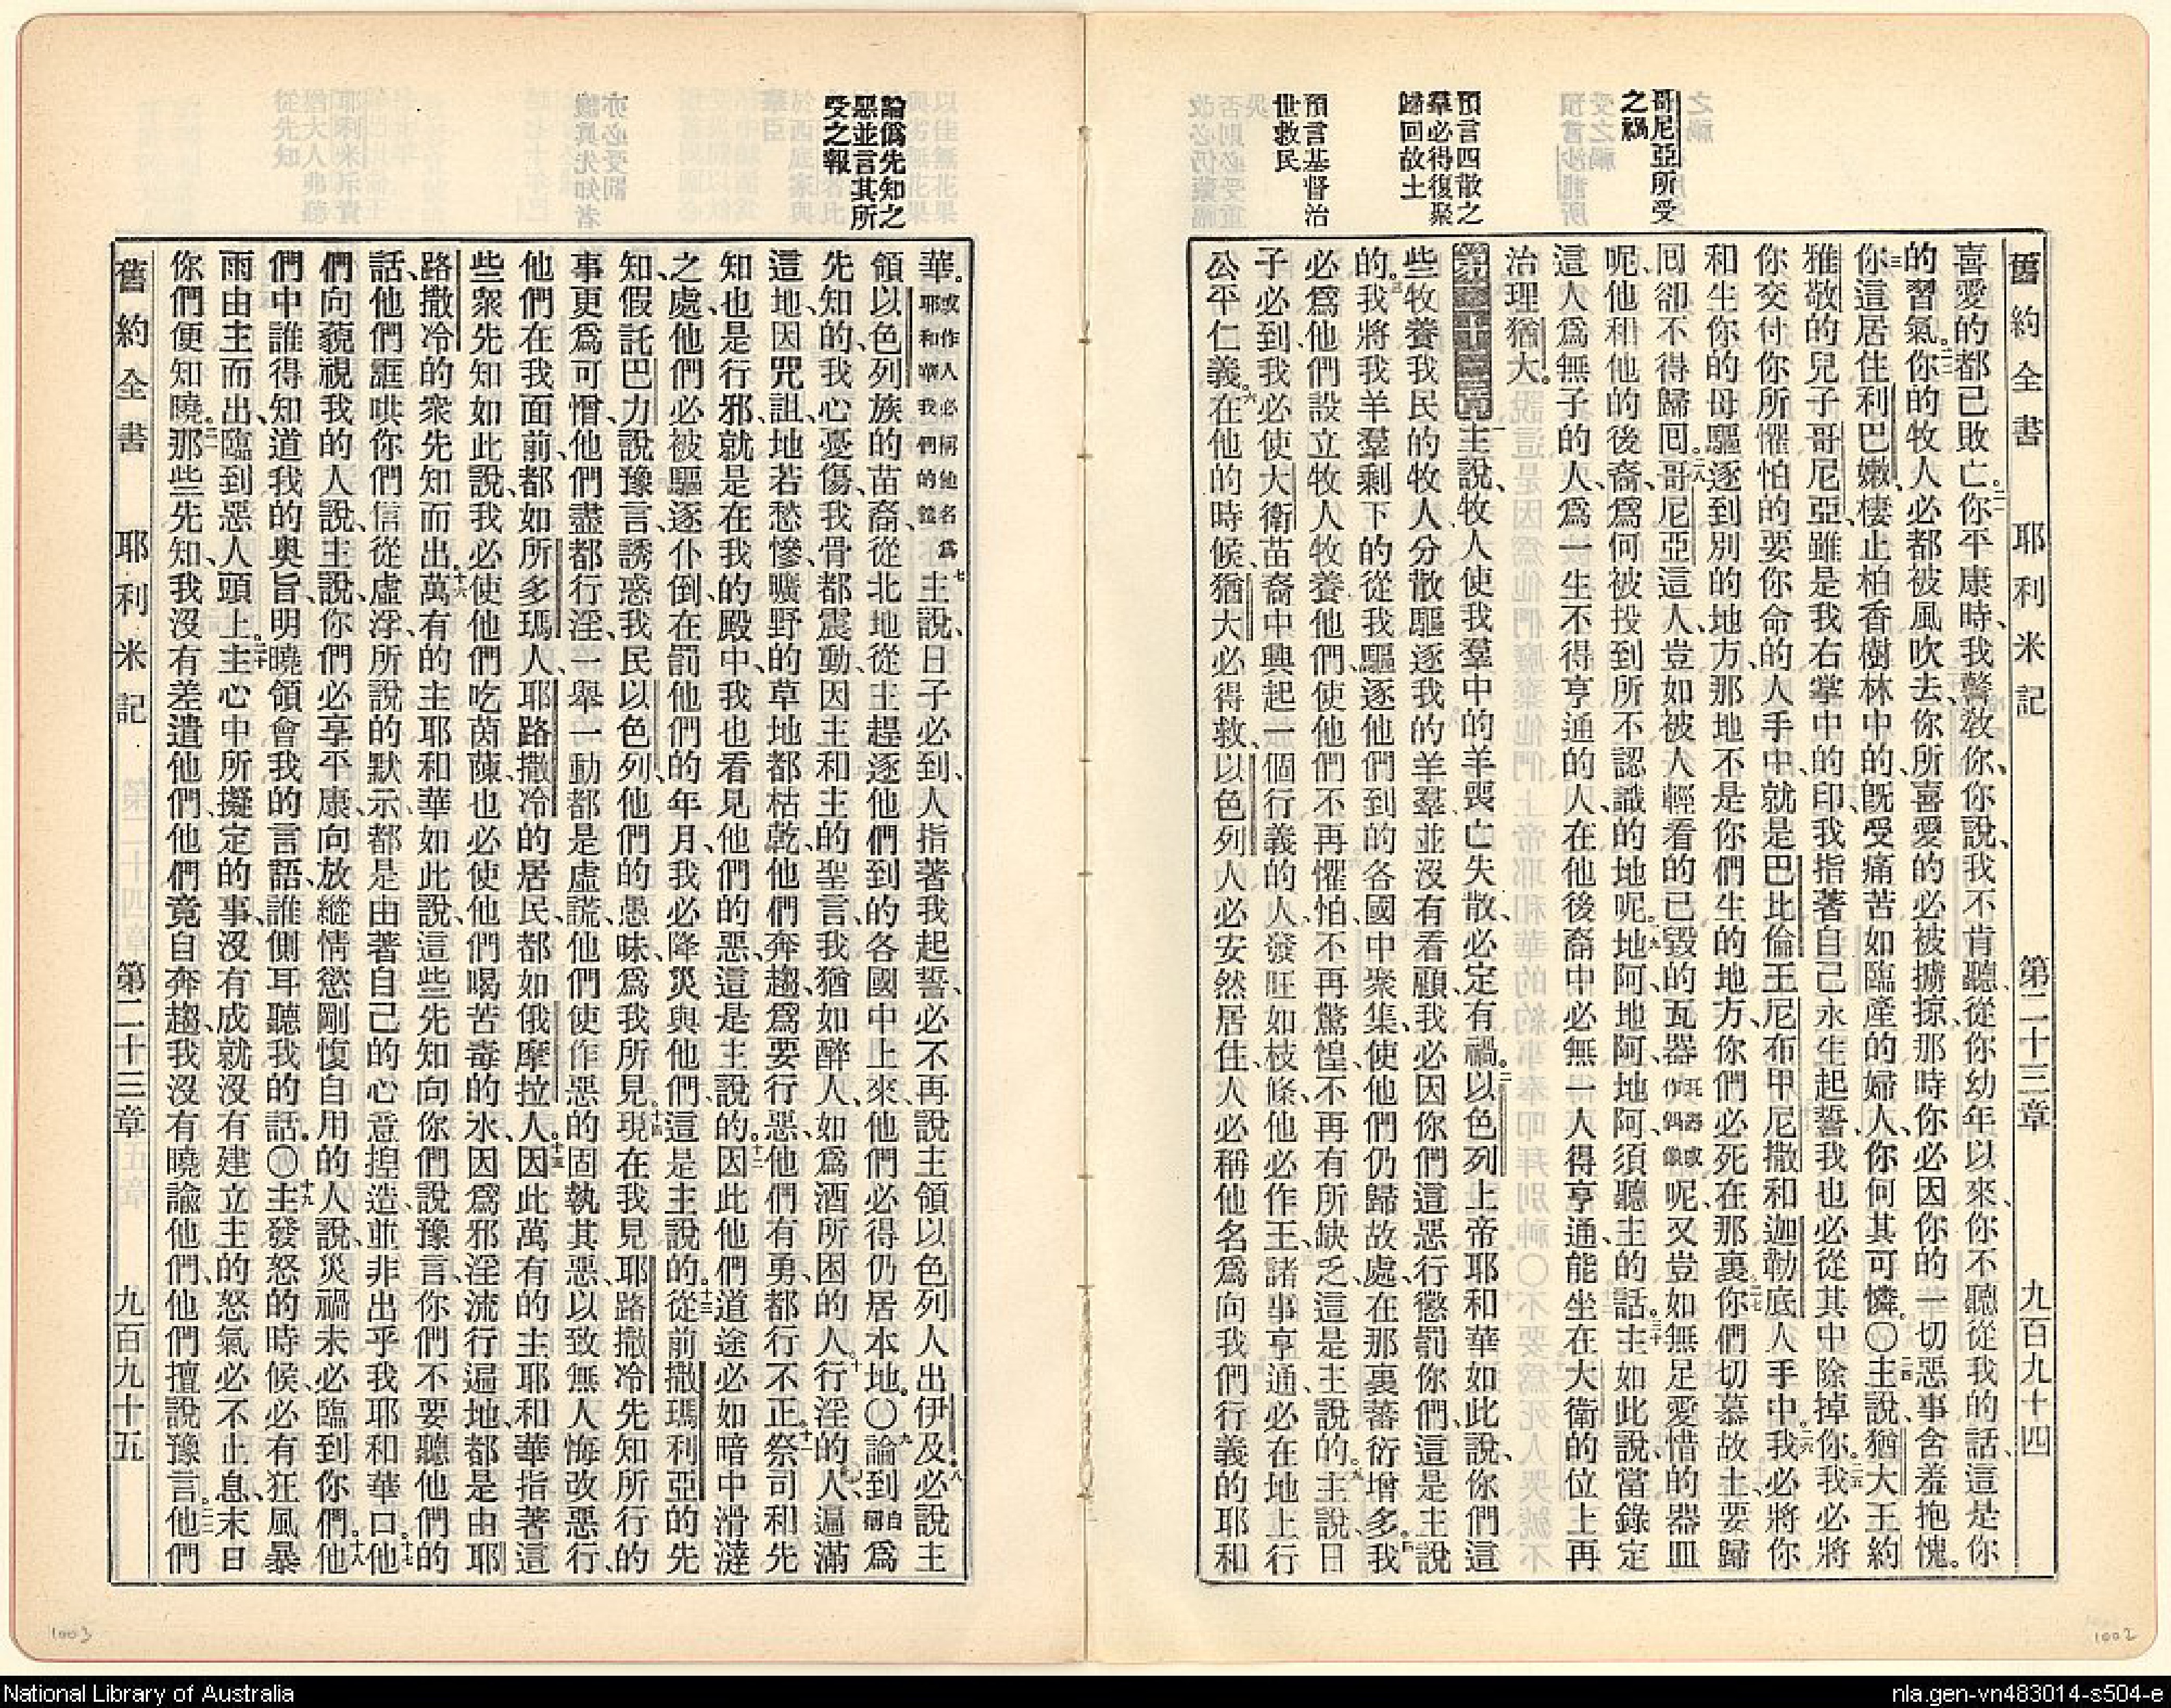 舊約全書 耶利米記 第二十三章 九百九十四
哥尼亞所受
之禍
預言四散之
羣必得復聚
歸回故土
預言基督治
世救民
喜愛的都已敗亡。二一你平康時、我警教你、你說、我不肯聽、從你幼年以來、你不聽從我的話、這是你
的習氣。二二你的牧人必都被風吹去、你所喜愛的必被擄掠、那時你必因你的一切惡事含羞抱愧。
二三你這居住利巴嫩、棲止柏香樹林中的、旣受痛苦如臨產的婦人、你何其可憐。〇二四主說、猶大王約
雅敬的兒子哥尼亞、雖是我右掌中的印、我指著自己永生起誓、我也必從其中除掉你。二五我必將
你交付你所懼怕的要你命的人手中、就是巴比倫王尼布甲尼撒和迦勒底人手中。二六我必將你
和生你的母、驅逐到別的地方、那地不是你們生的地方、你們必死在那裏。二七你們切慕故土、要歸
回卻不得歸回。二八哥尼亞這人、豈如被人輕看的已毀的瓦器瓦器或作偶像呢、又豈如無足愛惜的器皿
呢、他和他的後裔、爲何被投到所不認識的地呢。二九地阿、地阿、地阿、須聽主的話。三十主如此說、當錄定
這人爲無子的人、爲一生不得亨通的人、在他後裔中必無一人得亨通、能坐在大衛的位上再
治理猶大。
第二十三章一主說、牧人使我羣中的羊喪亡失散、必定有禍。二以色列上帝耶和華如此說、你們這
些牧養我民的牧人、分散驅逐我的羊羣、並沒有看顧、我必因你們這惡行懲罰你們、這是主說
的。三我將我羊羣剩下的、從我驅逐他們到的各國中聚集、使他們仍歸故處、在那裏蕃衍增多。四我
必爲他們設立牧人牧養他們、使他們不再懼怕、不再驚惶、不再有所缺乏、這是主說的。五主說、日
子必到、我必使大衛苗裔中興起一個行義的人、發旺如枝條、他必作王、諸事亨通、必在地上行
公平仁義。六在他的時候、猶大必得救、以色列人必安然居住、人必稱他名爲向我們行義的耶和
舊約全書 耶利米記 第二十三章 九百九十五
論僞先知之
惡並言其所
受之報
華。或作人必稱他名爲耶和華我們的義七主說、日子必到、人指著我起誓、必不再說主領以色列人出伊及、八必說主
領以色列族的苗裔、從北地從主趕逐他們到的各國中上來、他們必得仍居本地。〇九論到自稱爲
先知的、我心憂傷、我骨都震動、因主和主的聖言、我猶如醉人、如爲酒所困的人。十行淫的人、遍滿
這地、因咒詛、地若愁慘、曠野的草地都枯乾、他們奔趨爲要行惡、他們有勇、都行不正。十一祭司和先
知也是行邪、就是在我的殿中、我也看見他們的惡、這是主說的。十二因此他們道途必如暗中滑澾
之處、他們必被驅逐仆倒、在罰他們的年月、我必降災與他們、這是主說的。十三從前撒瑪利亞的先
知、假託巴力說豫言、誘惑我民以色列、他們的愚昧、爲我所見。十四現在我見耶路撒冷先知所行的
事更爲可憎、他們盡都行淫、一舉一動、都是虛謊、他們使作惡的固執其惡、以致無人悔改惡行、
他們在我面前、都如所多瑪人、耶路撒冷的居民、都如俄摩拉人。十五因此萬有的主耶和華指著這
些衆先知如此說、我必使他們吃茵蔯、也必使他們喝苦毒的水、因爲邪淫流行遍地、都是由耶
路撒冷的衆先知而出。十六萬有的主耶和華如此說、這些先知向你們說豫言、你們不要聽他們的
話、他們誆哄你們信從虛浮、所說的默示、都是由著自己的心意捏造、並非出乎我耶和華口。十七他
們向藐視我的人說、主說、你們必享平康、向放縱情慾剛愎自用的人說、災禍未必臨到你們。十八他
們中誰得知道我的奥旨、明曉領會我的言語、誰側耳聽我的話。〇十九主發怒的時候、必有狂風暴
雨由主而出、臨到惡人頭上。二十主心中所擬定的事、沒有成就、沒有建立、主的怒氣必不止息、末日
你們便知曉。二一那些先知、我沒有差遣他們、他們竟自奔趨、我沒有曉諭他們、他們擅說豫言。二二他們
1003
1002
National Library of Australia
nla.gen-vn483014-s504-e